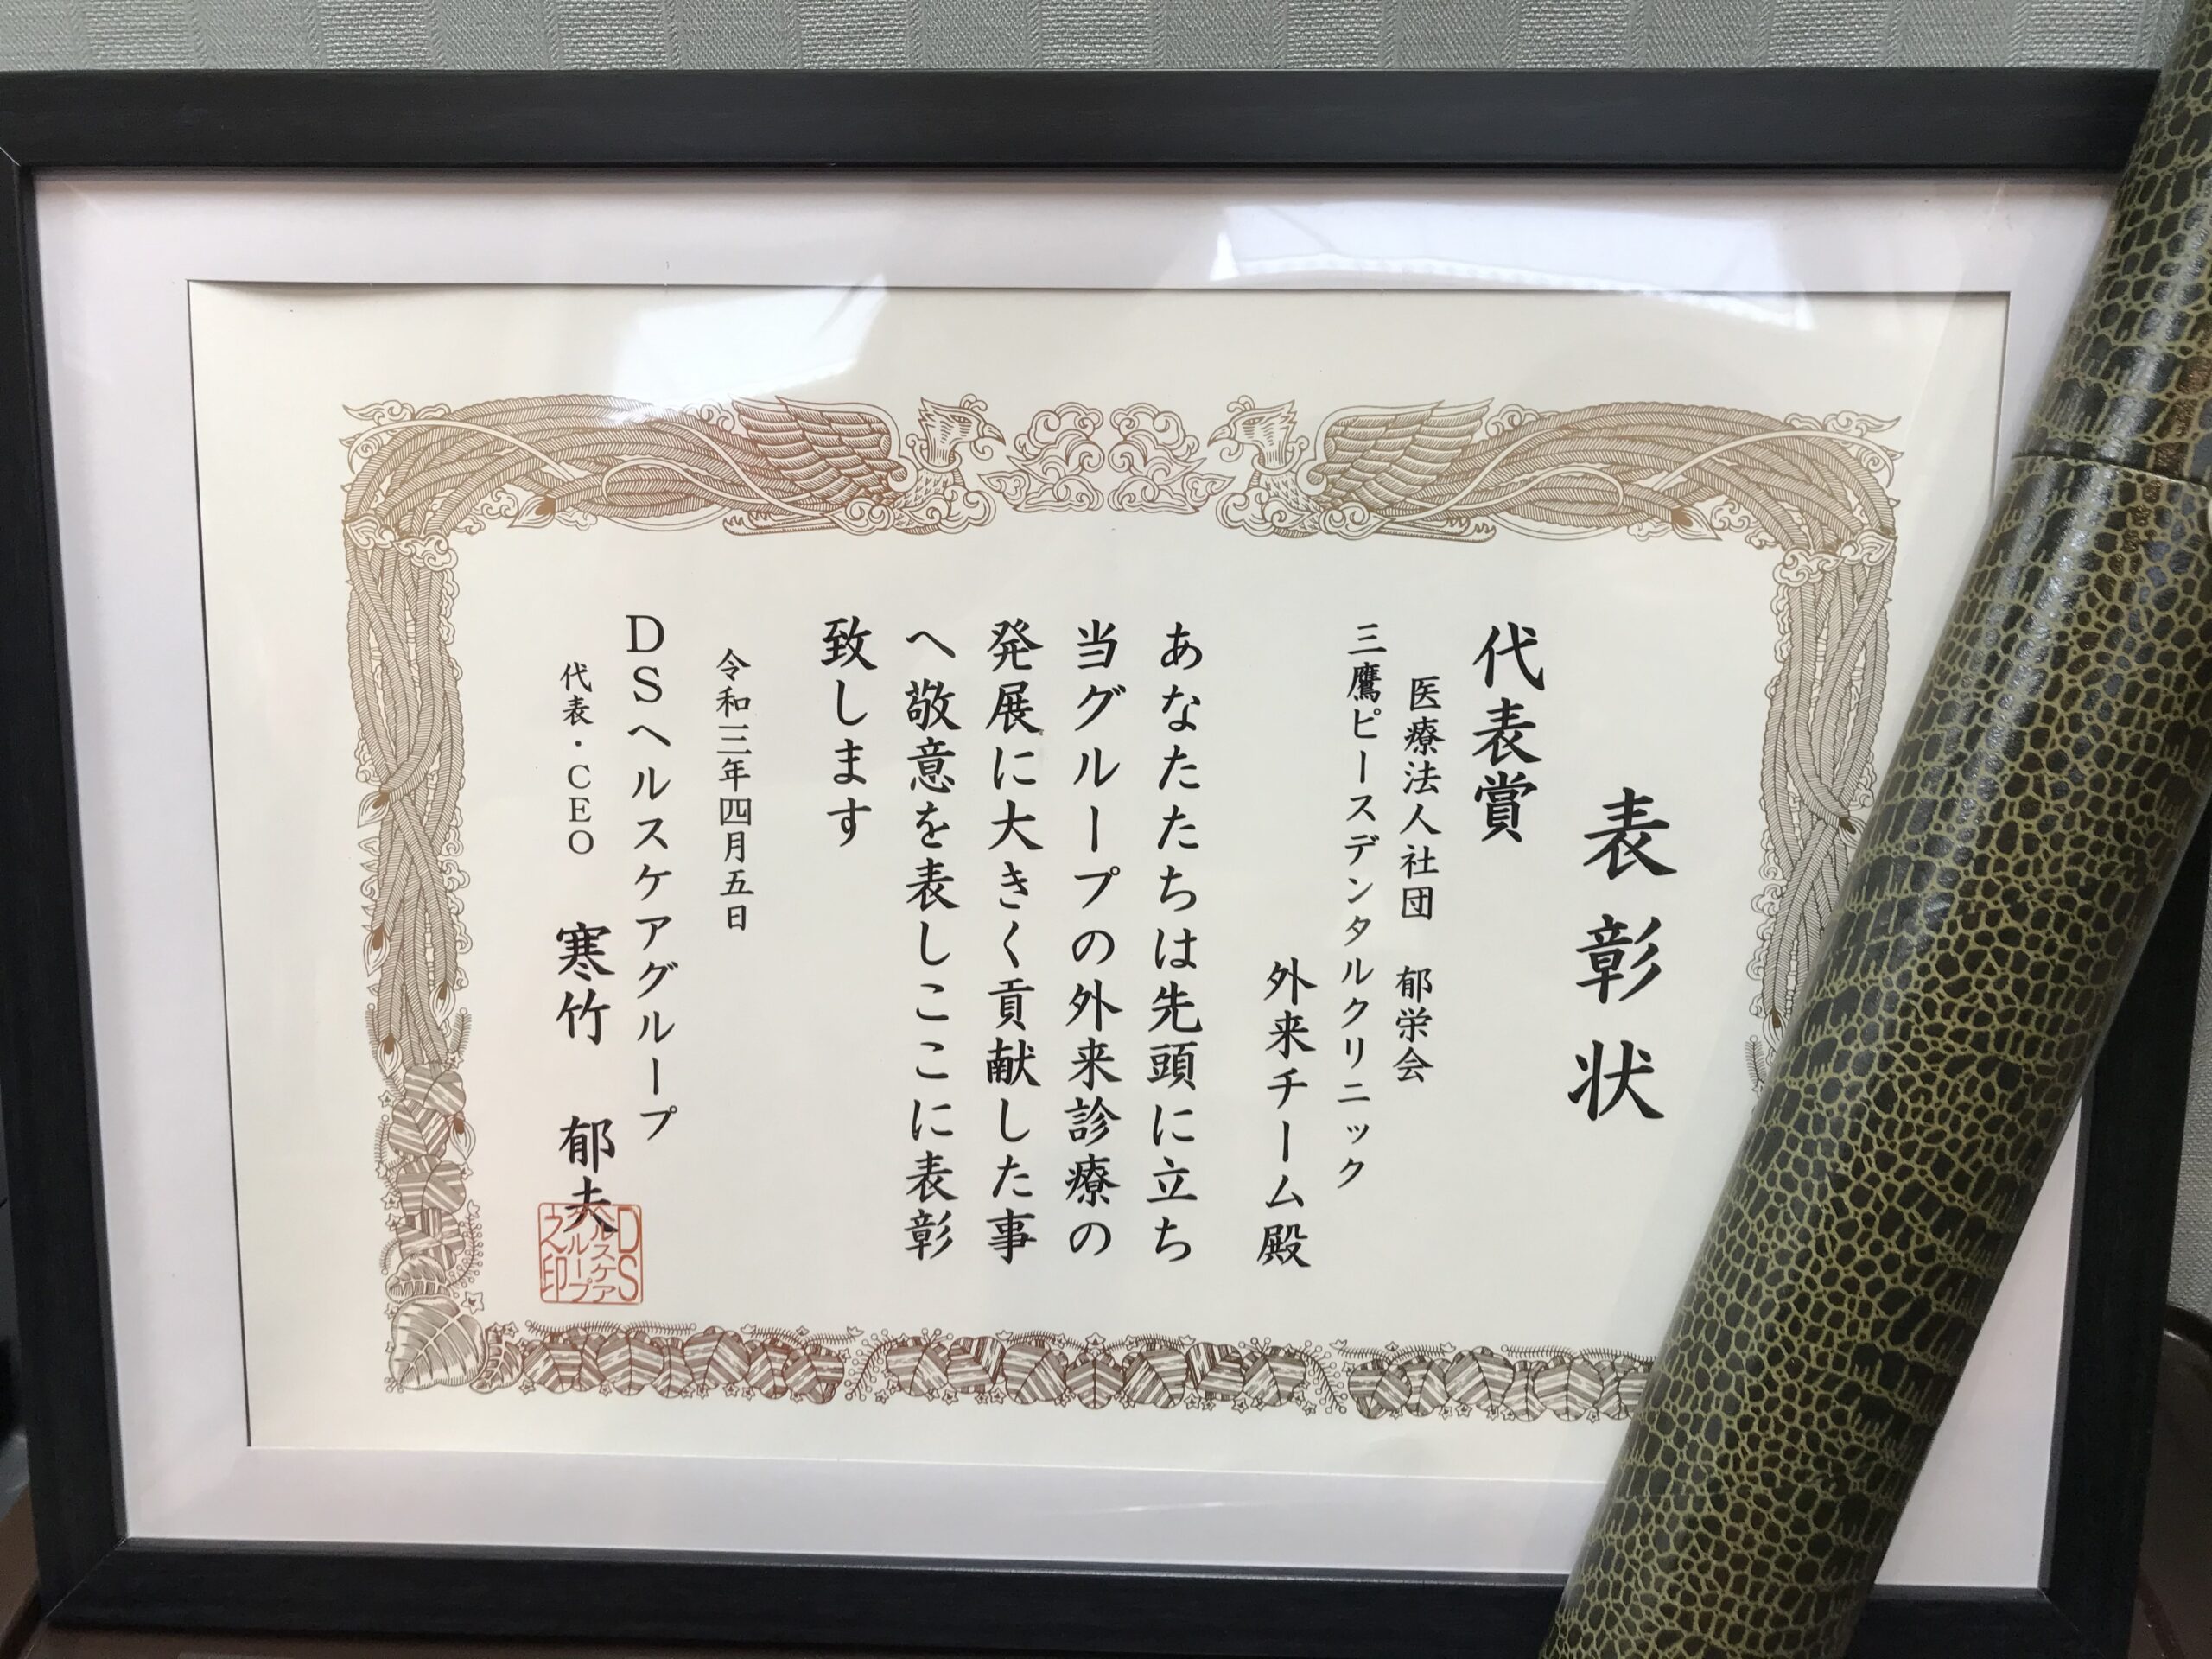 表彰状
代表賞
医療法人社団　郁栄会
三鷹ピースデンタルクリニック
外来チーム殿
あなたたちは先頭に立ち
当グループの外来診療の
発展に大きく貢献した事
へ敬意を表しここに表彰
致します
令和三年四月五日
DSヘルスケアグループ
代表・CEO　寒竹　郁夫
DS
ヘルスケア
グループ
之印